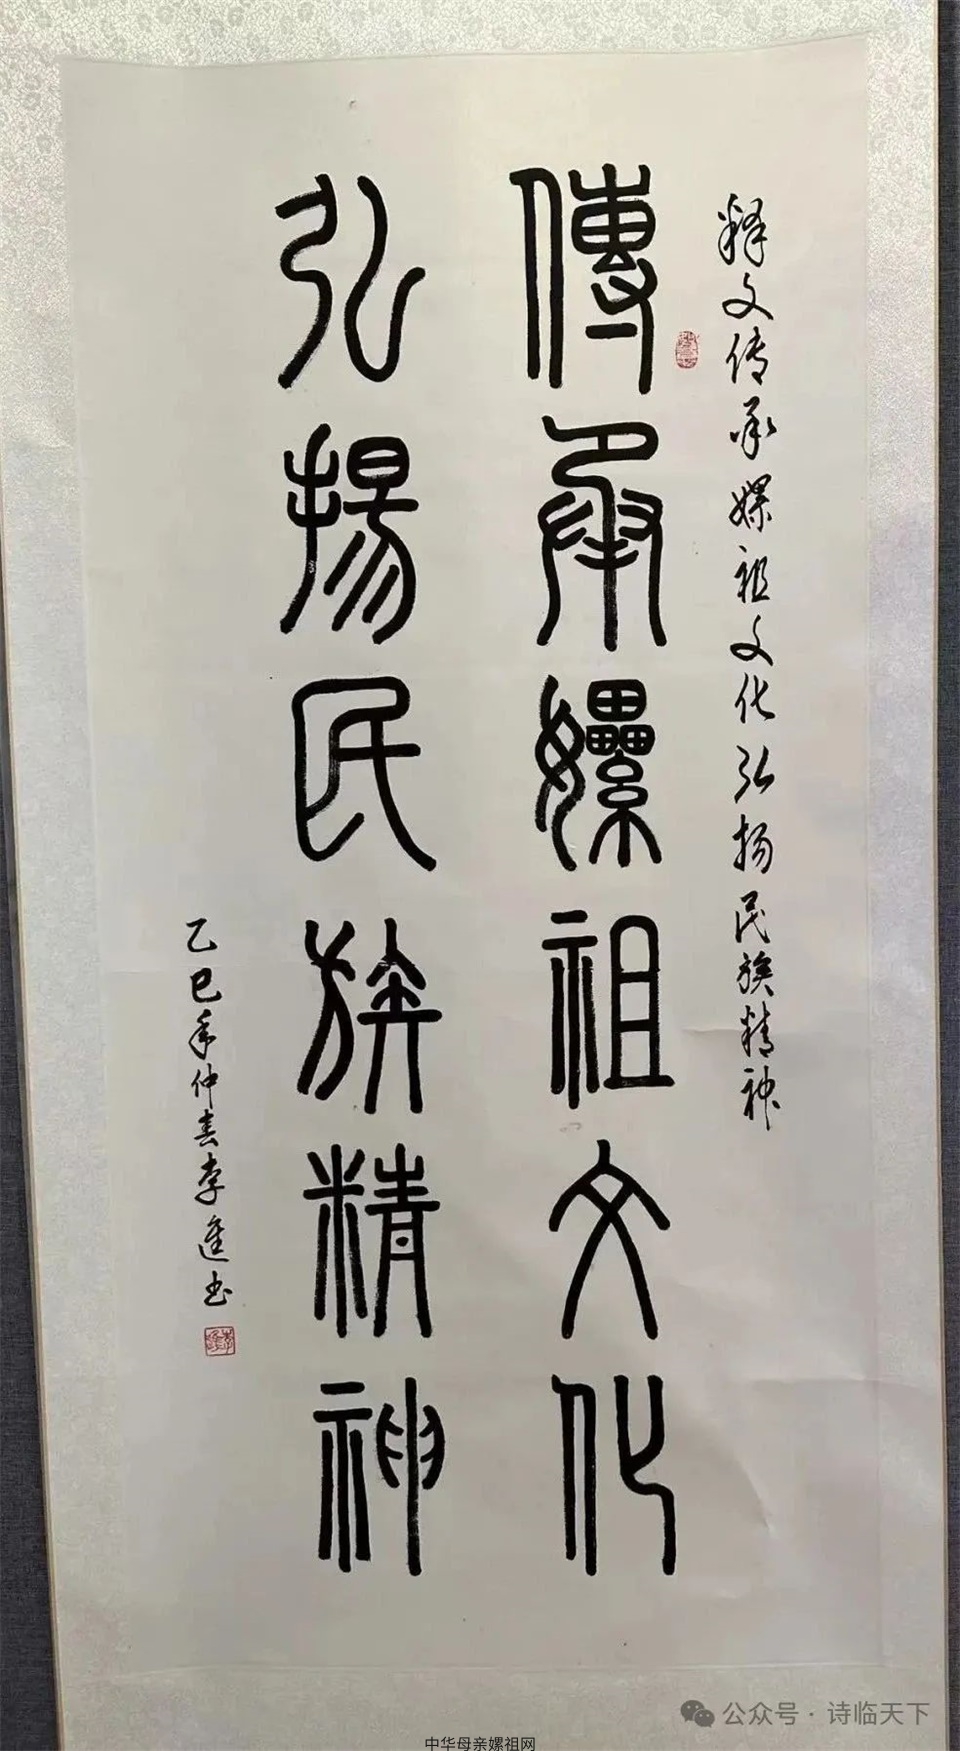 释文传承嫘祖文化弘扬民族精神
傳承嫘祖文化
弘揚民族精神
乙巳年仲春李進书
公众号·诗临天下
中华母亲嫘祖网